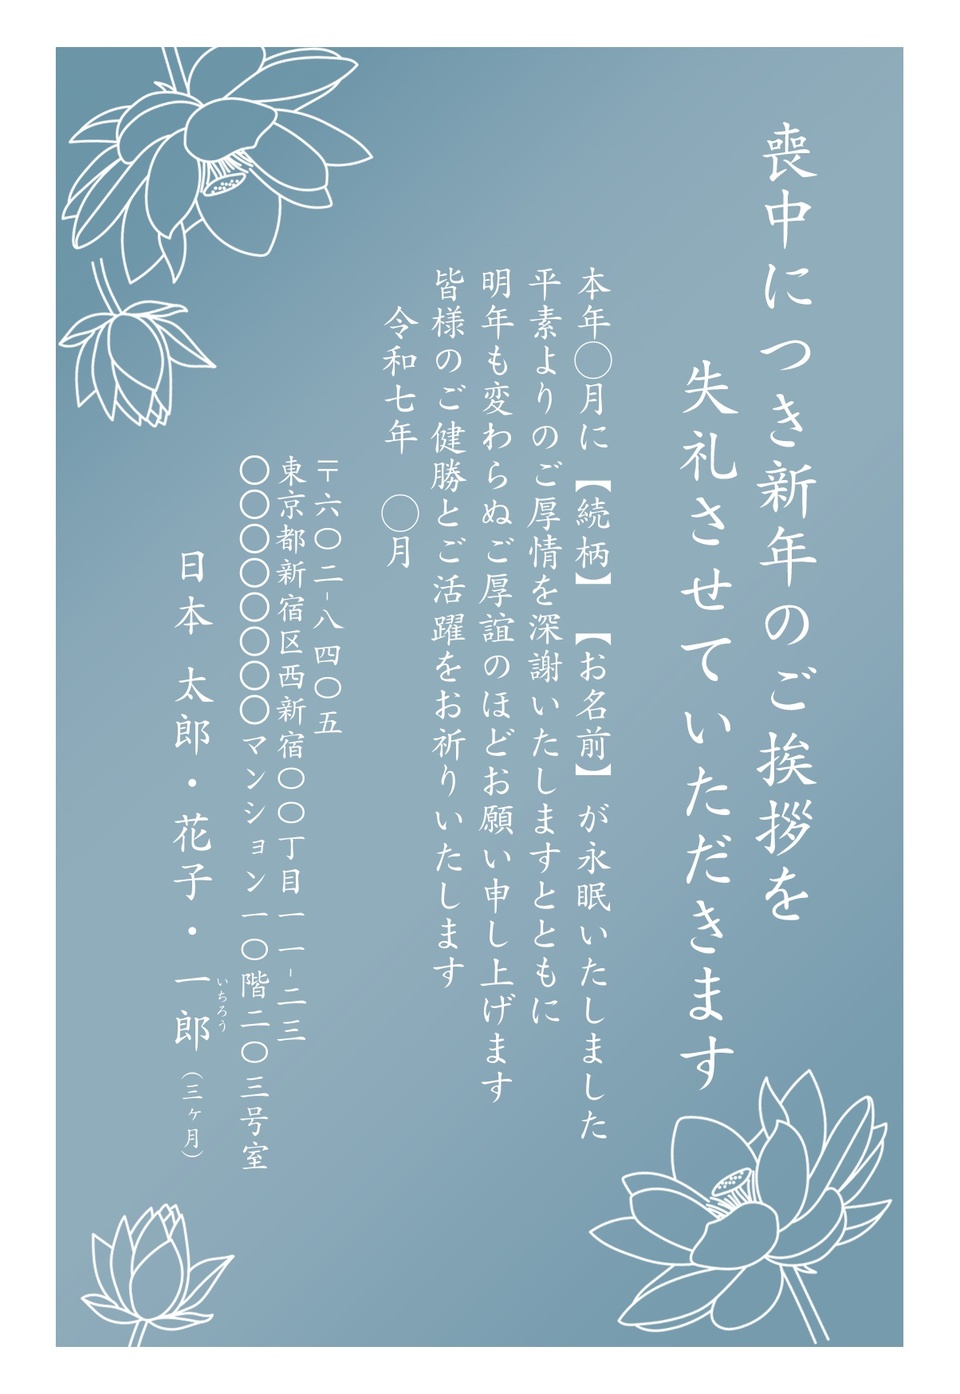 喪中につき新年のご挨拶を
失礼させていただきます
本年◯月に【続柄】【お名前】が永眠いたしました
平素よりのご厚情を深謝いたしますとともに
明年も変わらぬご厚誼のほどお願い申し上げます
皆様のご健勝とご活躍をお祈りいたします
令和七年　◯月
〒六〇二-八四〇五
東京都新宿区西新宿〇〇丁目一一-二三
〇〇〇〇〇〇〇〇マンション一〇階二〇三号室
いちろう
日本 太郎・花子・一郎（三ヶ月）